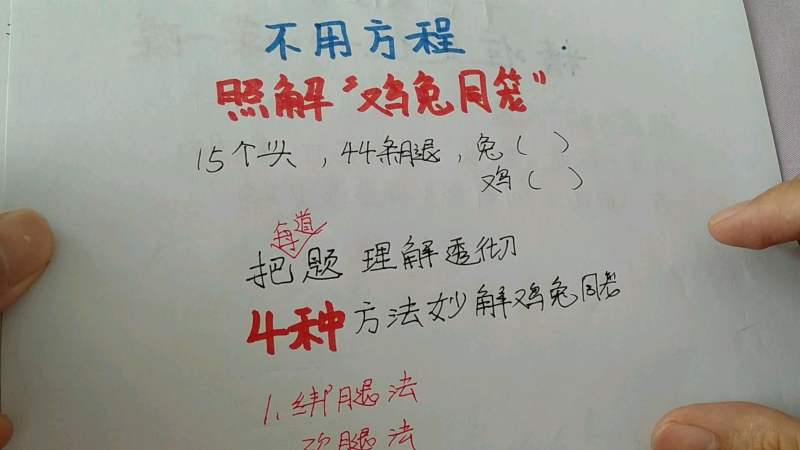 不用方程
照解“鸡兔同笼”
15个头，44条腿，兔（ ）
鸡（ ）
每道
把题理解透彻
4种方法妙解鸡兔同笼
1、绑腿法
砍腿法